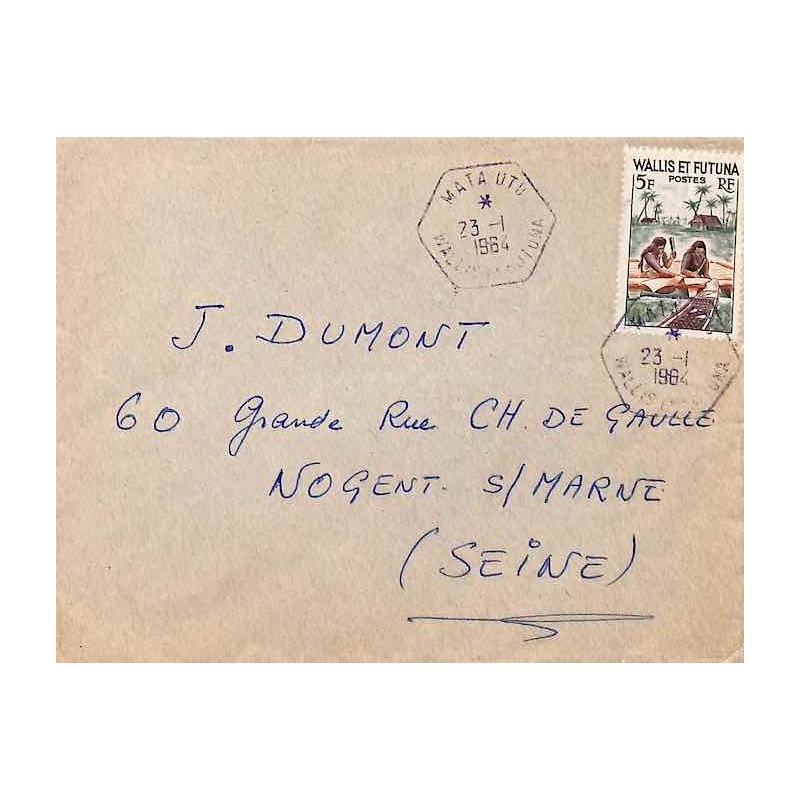 MATA UTU
23 -1
1964
WALLIS ET FUTUNA
WALLIS ET FUTUNA
5F POSTES RF
MATA
23 -1
1964
WALLIS ET FUTUNA
J. DUMONT
60 Grande Rue CH. DE GAULLE
NOGENT. S/MARNE
(SEINE)